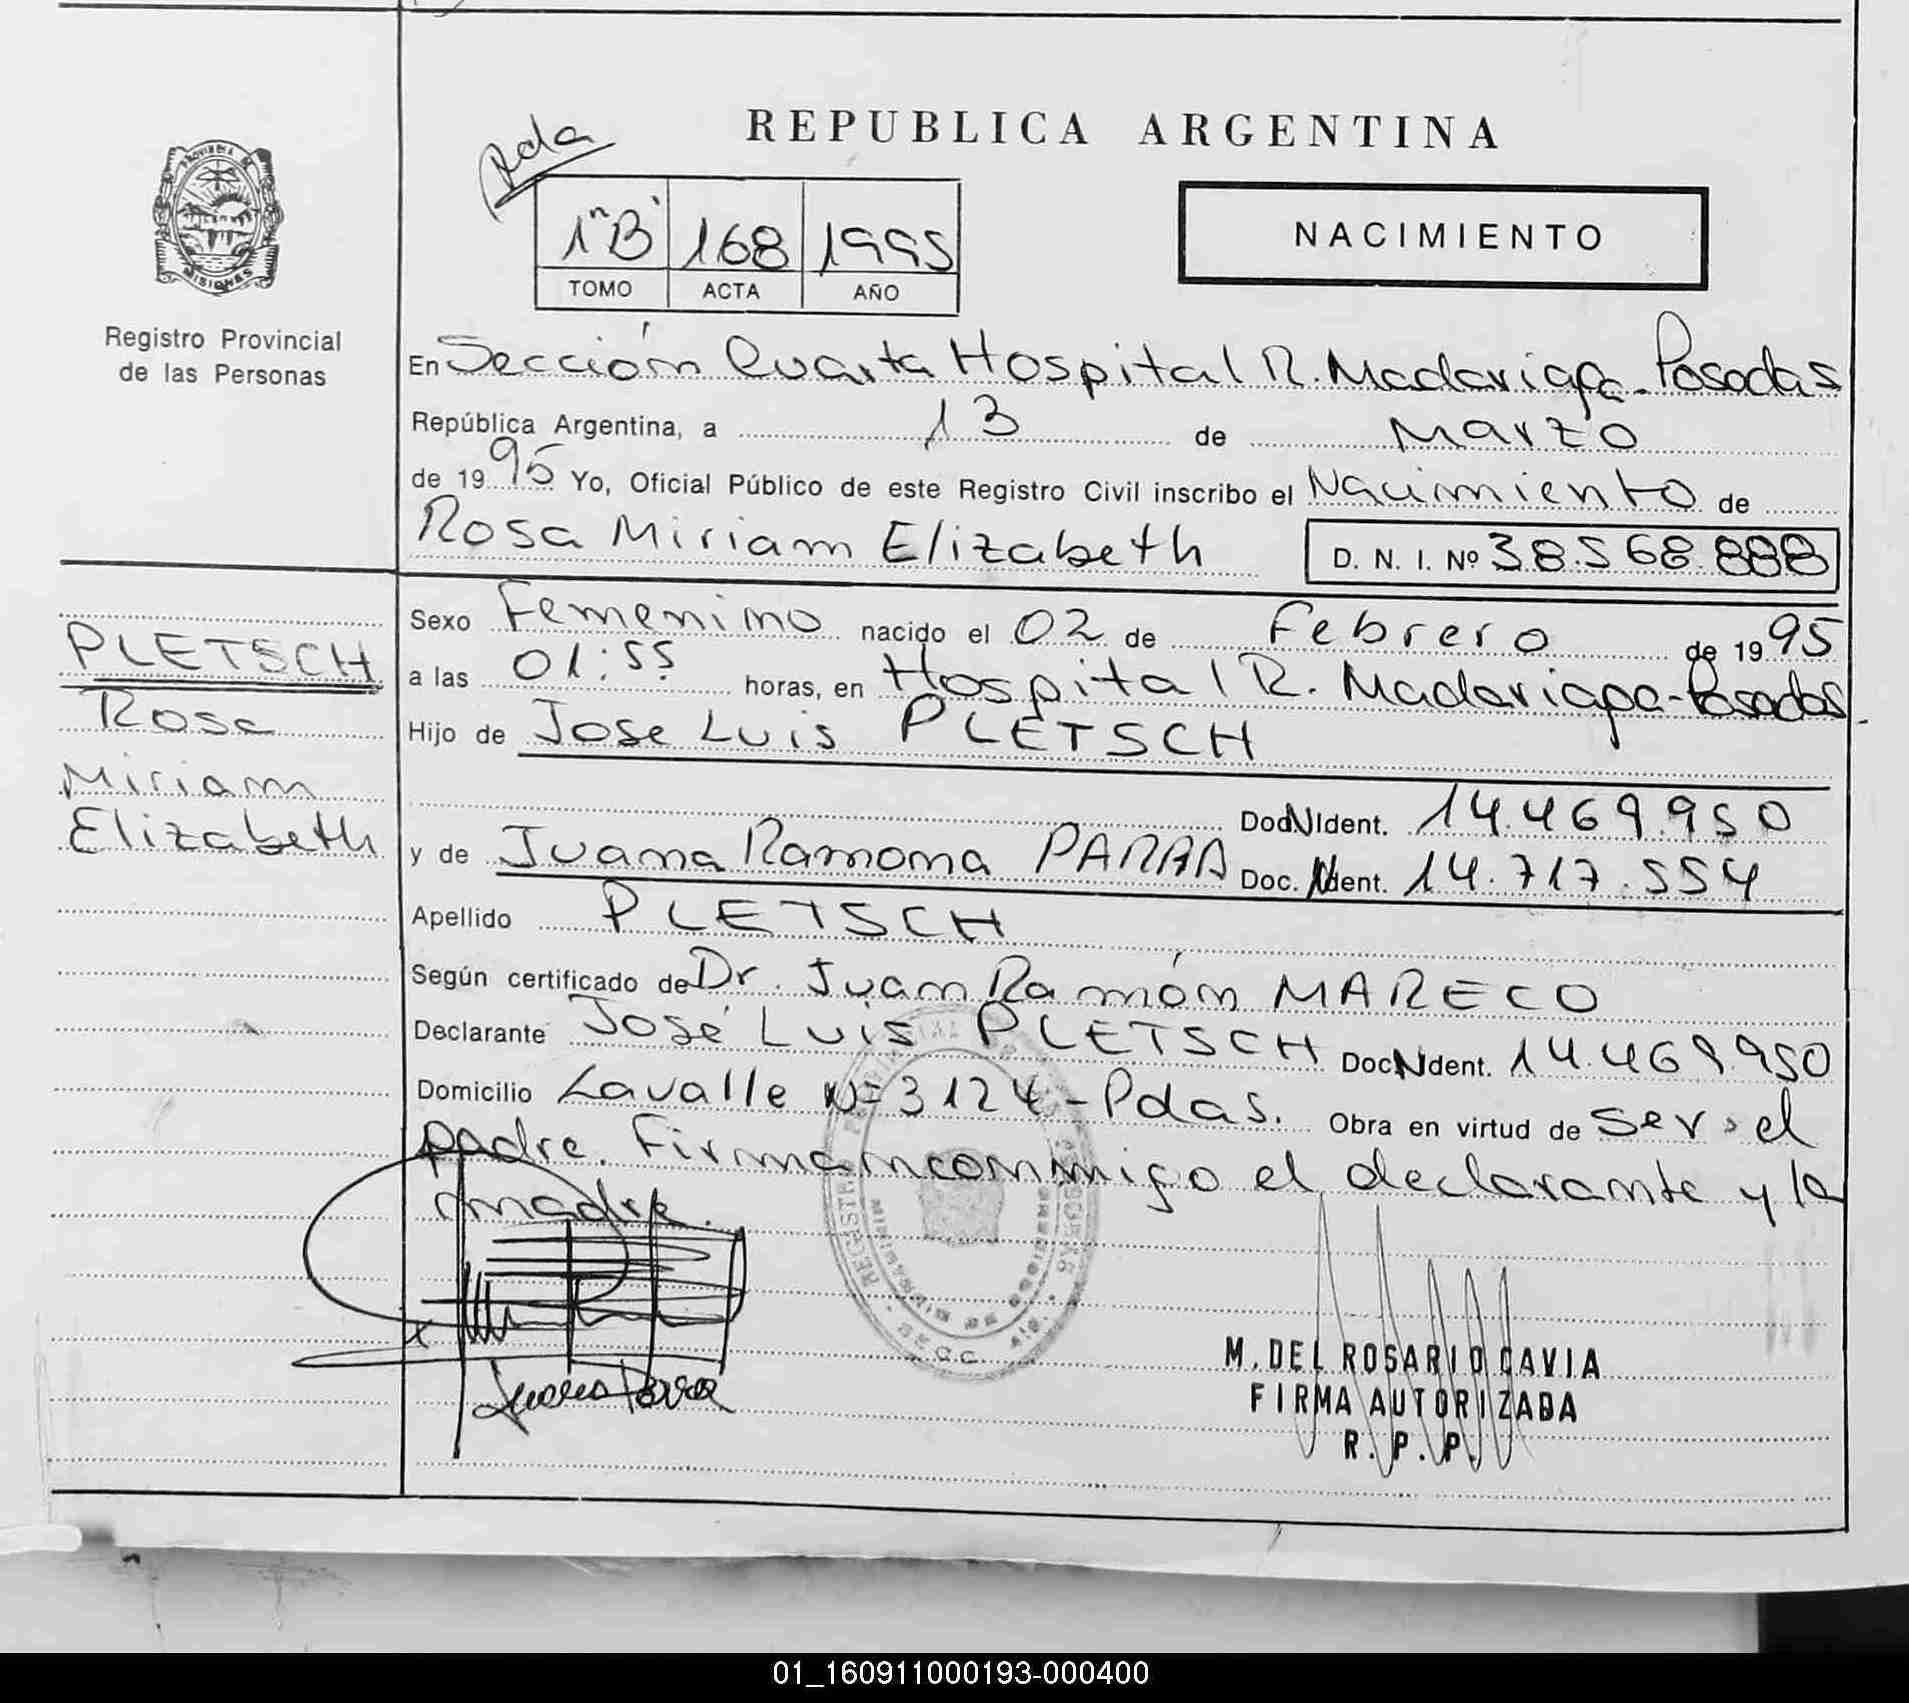 Rda
REPUBLICA ARGENTINA
1"B" 168 1995
TOMO ACTA AÑO
NACIMIENTO
PROVINCIA DE
MISIONES
Registro Provincial
de las Personas
En Sección Cuarta Hospital R. Madariaga - Posadas
República Argentina, a 13 de Marzo
de 1995 Yo, Oficial Público de este Registro Civil inscribo el Nacimiento de
Rosa Miriam Elizabeth D. N. I. Nº 38.568.888
PLETSCH
Rosa
Miriam
Elizabeth
Sexo Femenino nacido el 02 de Febrero de 1995
a las 01:55 horas, en Hospital R. Madariaga - Posadas.
Hijo de Jose Luis PLETSCH
Doc N Ident. 14.469.950
y de Juana Ramona PARRA Doc. N Ident. 14.717.554
Apellido PLETSCH
Según certificado de Dr. Juan Ramón MARECO
Declarante José Luis PLETSCH Doc N Ident. 14.469.950
Domicilio Lavalle Nº 3124 - Pdas. Obra en virtud de ser el
padre. Firman conmigo el declarante y la
madre.
Juana Parra
M. DEL ROSARIO CAVIA
FIRMA AUTORIZADA
R. P. P.
01_160911000193-000400